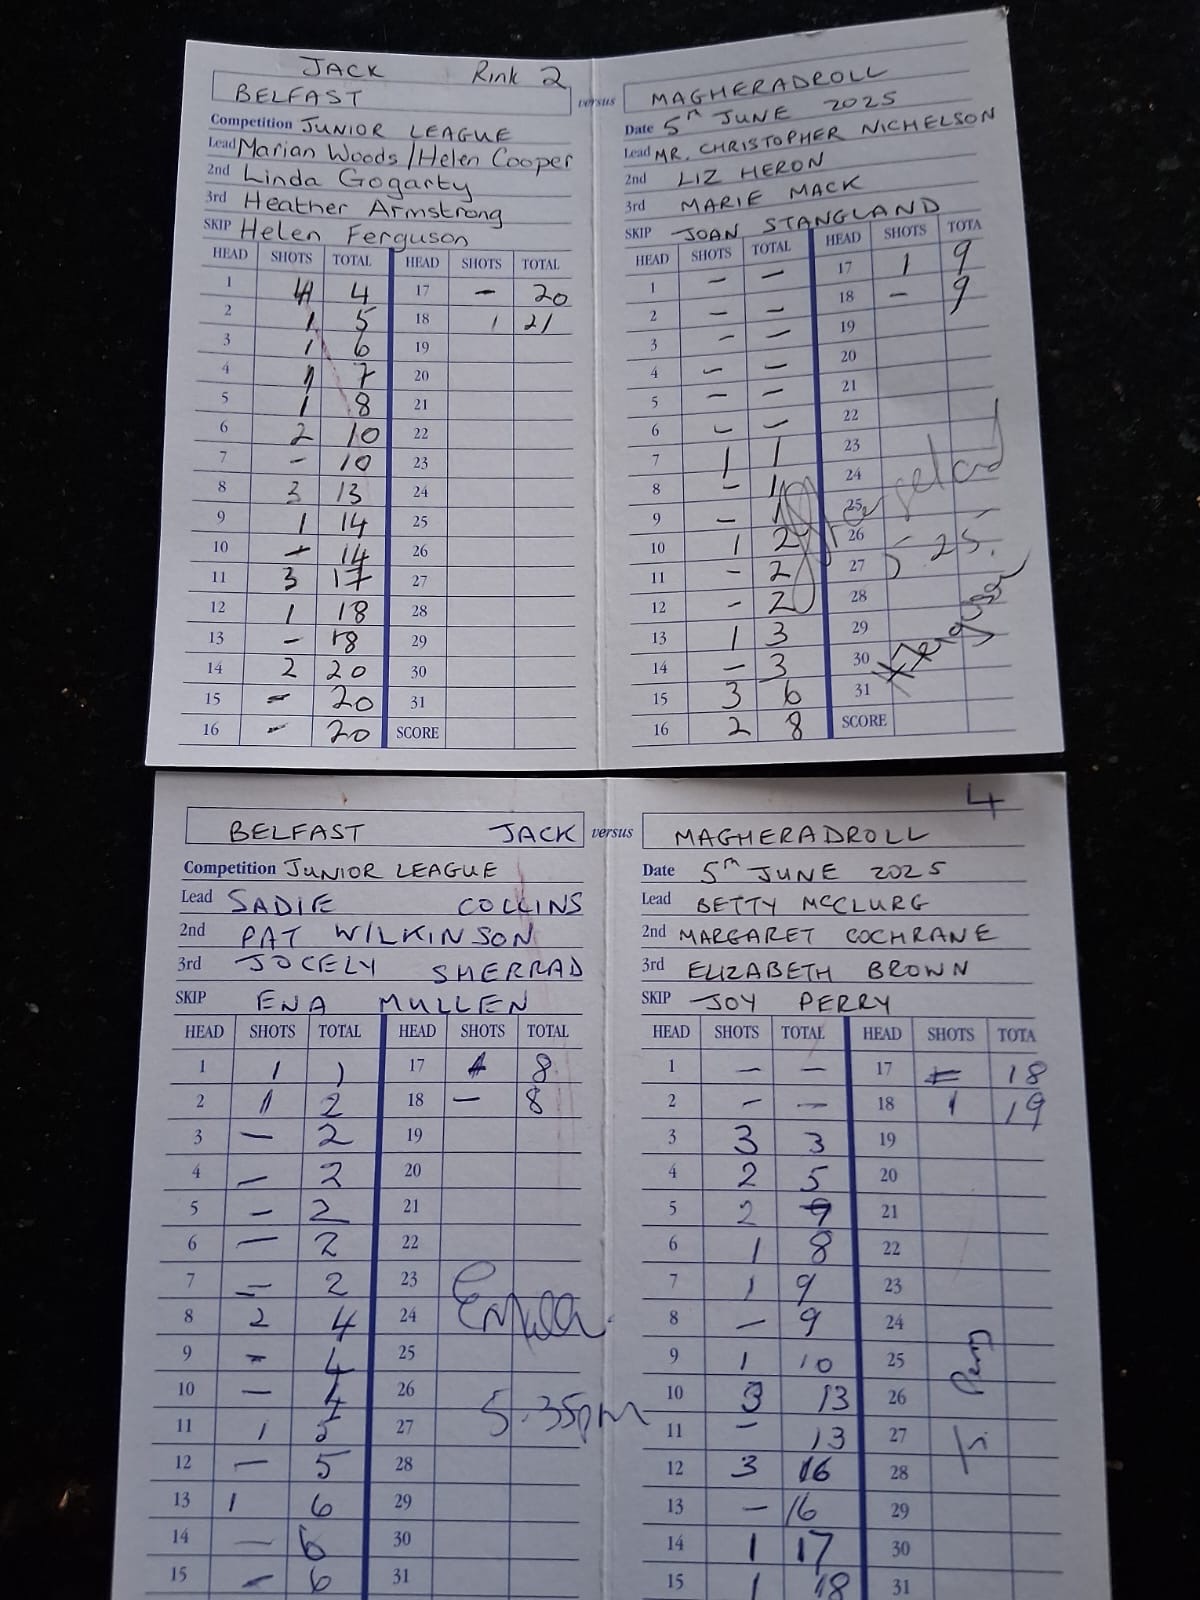 JACK Rink 2
BELFAST versus MAGHERADROLL
Competition JUNIOR LEAGUE
Lead Marian Woods / Helen Cooper
2nd Linda Gogarty
3rd Heather Armstrong
SKIP Helen Ferguson
HEAD SHOTS TOTAL HEAD SHOTS TOTAL
1 4 4 17 - 20
2 1 5 18 1 21
3 1 6 19
4 1 7 20
5 1 8 21
6 2 10 22
7 - 10 23
8 3 13 24
9 1 14 25
10 - 14 26
11 3 17 27
12 1 18 28
13 - 18 29
14 2 20 30
15 - 20 31
16 - 20 SCORE
Date 5TH JUNE 2025
Lead MR. CHRISTOPHER NICHELSON
2nd LIZ HERON
3rd MARIE MACK
SKIP JOAN STANGLAND
HEAD SHOTS TOTAL HEAD SHOTS TOTA
1 - - 17 1 9
2 - - 18 - 9
3 - - 19
4 - - 20
5 - - 21
6 - - 22
7 1 1 23
8 - 1 24
9 - 1 25
10 1 2 26 5-25.
11 - 2 27
12 - 2 28
13 1 3 29
14 - 3 30
15 3 6 31
16 2 8 SCORE
4
BELFAST JACK versus MAGHERADROLL
Competition JUNIOR LEAGUE
Lead SADIE COLLINS
2nd PAT WILKINSON
3rd JOCELY SHERRAD
SKIP ENA MULLEN
HEAD SHOTS TOTAL HEAD SHOTS TOTAL
1 1 1 17 8
2 1 2 18 - 8
3 - 2 19
4 - 2 20
5 - 2 21
6 - 2 22
7 - 2 23
8 2 4 24
9 - 4 25
10 - 4 26
11 1 5 27 5.35pm
12 - 5 28
13 1 6 29
14 - 6 30
15 - 6 31
Date 5TH JUNE 2025
Lead BETTY MCCLURG
2nd MARGARET COCHRANE
3rd ELIZABETH BROWN
SKIP JOY PERRY
HEAD SHOTS TOTAL HEAD SHOTS TOTA
1 - - 17 - 18
2 - - 18 1 19
3 3 3 19
4 2 5 20
5 2 7 21
6 1 8 22
7 1 9 23
8 - 9 24
9 1 10 25
10 3 13 26
11 - 13 27
12 3 16 28
13 - 16 29
14 1 17 30
15 1 18 31